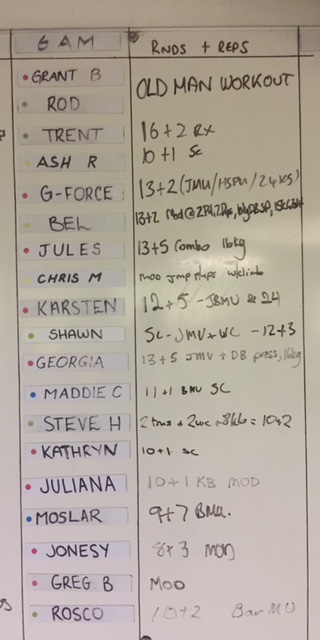 6 AM RNDS + REPS
GRANT B OLD MAN WORKOUT
ROD
TRENT 16+2 RX
ASH R 10+1 Sc
G-FORCE 13+2 (JMU/HSPU/24KG)
BEL 13+2 Mod @
JULES 13+5 Combo 16kg
CHRIS M MOD Jmp
KARSTEN 12+5 - JBMU & 24
SHAWN SC-JMU+WC -12+3
GEORGIA 13+5 JMU + DB press, 16kg
MADDIE C 11+1 BMU SC
STEVE H 2 +2wc+8kb = 10+2
KATHRYN 10+1 SC
JULIANA 10+1 KB MOD
MOSLAR 9+7 BMU.
JONESY 8+3 MOD
GREG B MOD
ROSCO 10+2 Bar MU